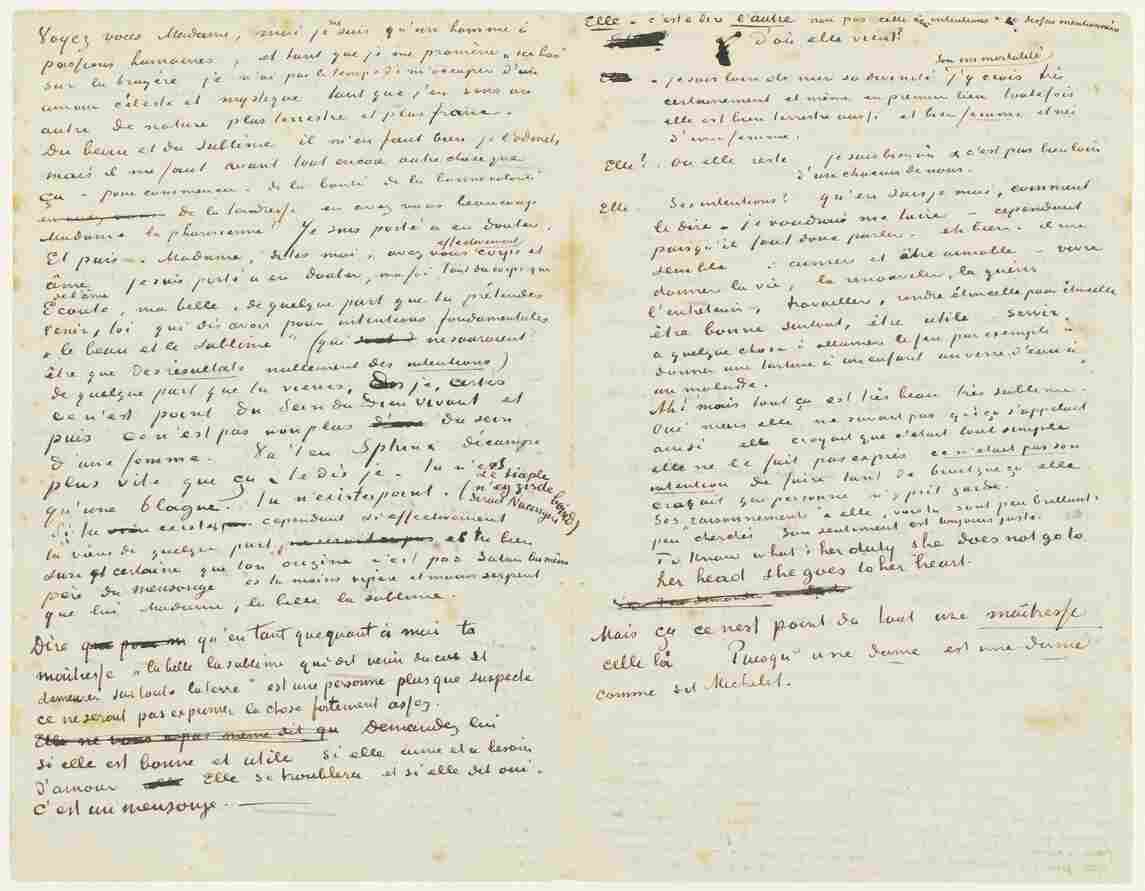 Voyez vous Madame, moi je ne suis qu'un homme à
passions humaines, et tant que je me promène "ici bas"
sur la bruyère je n'ai pas le temps de m'occuper d'un
amour céleste et mystique tant que j'en sens un
autre de nature plus terrestre et plus franc.
Du beau et du sublime il m'en faut bien je l'admets,
mais il me faut avant tout encor autre chose que
ça – pour commencer – de la bonté de la bonne volonté
en avez vous de la tendresse en avez vous beaucoup
Madame la pharisienne? Je suis porté à en douter.
Et puis – Madame, dites moi, avez vous effectivement corps et
âme je suis porté à en douter, ma foi tant du corps que
de l'âme
Ecoute, ma belle, de quelque part que tu prétendes
venir, toi qui dis avoir pour intentions fondamentales
"le beau et le sublime" (qui ne sauraient
être que des résultats nullement des intentions)
de quelque part que tu viennes, dis je, certes
ce n'est point du sein du Dieu vivant et
puis ce n'est pas non plus du sein
d'une femme. Va t'en Sphinx décampe
plus vite que ça – te dis je – tu n'es
qu'une blague. Tu n'existes point. (le diable
n'existe
dirait Nacquart
Si tu existes cependant si effectivement
tu viens de quelque part, es tu bien
sure et certaine que ton origine c'est pas Satan lui même
père du mensonge es tu moins vipère et moins serpent
que lui Madame, la belle la sublime.
Dire qu'en tant que quant à moi ta
maîtresse "la belle la sublime qui est venu du ciel et
demeurer sur toute la terre" est une personne plus que suspecte
ce ne serait pas exprimer la chose fortement assez.
Elle ne vous a pas meme dit qu Demandez lui
si elle est bonne et utile si elle aime et a besoin
d'amour Elle se troublera et si elle dit oui –
c'est un mensonge. –
Elle – c'est à dire l'autre non pas celle à intentions – susmentionnées
D'où elle vient?
son immortalité
– je suis loin de nier sa divinité j'y crois très
certainement et même en premier lieu toutefois
elle est bien terrestre aussi et bien femme et née
d'une femme.
Elle! Où elle reste, je sais bien où & c'est pas bien loin
d'un chacun de nous.
Elle Ses intentions? qu'en sais je moi, comment
le dire – je voudrais me taire – cependant
puisqu'il faut donc parler – eh bien – il me
semble : aimer et être aimable – vivre
donner la vie, la renouveler, la guérir
l'entretenir, travailler, rendre étincelle pour étincelle
être bonne surtout, être utile servir
a quelque chose : allumer le feu par exemple :
donner une tartine à un enfant un verre d'eau à
un malade.
Ah! mais tout ça est très beau très sublime.
Oui mais elle ne savait pas que ça s'appelait
ainsi elle croyait que c'était tout simple
elle ne le fait pas exprès ce n'était pas son
intention de faire tant de bruit que ça elle
croyait que personne n'y prit garde.
Ses "raisonnements" à elle, vois tu sont peu brillants
peu cherchés Son sentiment est toujours juste.
To know what's her duty she does not go to
her head she goes to her heart.
Mais ça ce n'est point du tout une maîtresse
celle là Puisqu'une dame est une dame
comme dit Michelet.